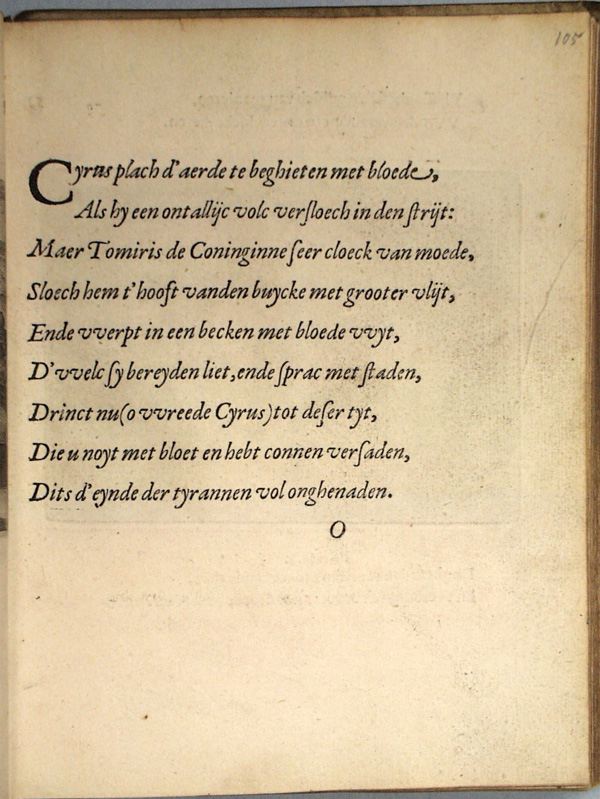 105
Cyrus plach d'aerde te beghieten met bloede,
Als hy een ontallijc volc verſloech in den ſtrijt:
Maer Tomiris de Coninginne ſeer cloeck van moede,
Sloech hem t'hooft vanden buycke met grooter vlijt,
Ende vverpt in een becken met bloede vvyt,
D'vvelc ſy bereyden liet, ende ſprac met ſtaden,
Drinct nu (o vvreede Cyrus) tot deſer tyt,
Die u noyt met bloet en hebt connen verſaden,
Dits d'eynde der tyrannen vol onghenaden.
O